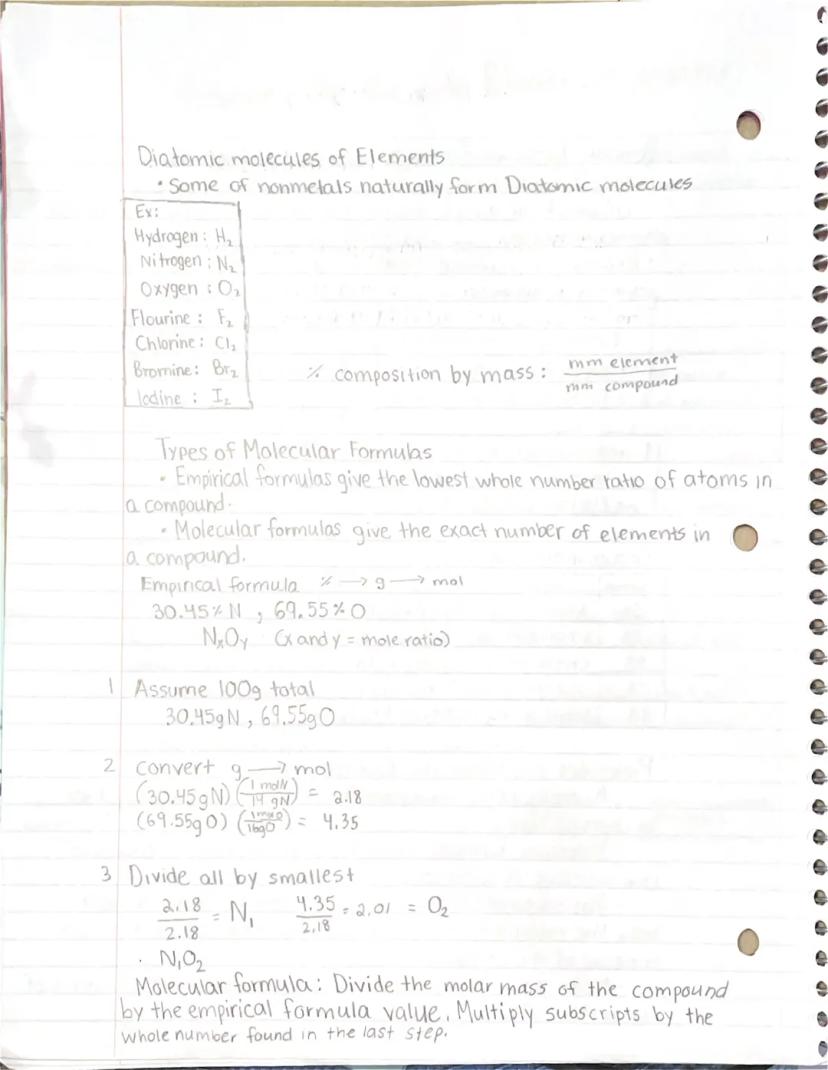 Diatomic molecules of Elements
• Some of nonmetals naturally form Diatomic molecules
Ex:
Hydrogen : H₂
Nitrogen : N₂
Oxygen : O₂
Flourine : F₂
Chlorine : Cl₂
Bromine : Br₂
Iodine : I₂
% composition by mass : mm element / mm compound
Types of Molecular Formulas
• Empirical formulas give the lowest whole number ratio of atoms in
a compound.
• Molecular formulas give the exact number of elements in
a compound.
Empirical formula % → g → mol
30.45% N , 69.55% O
NₓOᵧ (x and y = mole ratio)
1 Assume 100g total
30.45g N , 69.55g O
2 Convert g → mol
(30.45 g N) (1 mol N / 14 g N) = 2.18
(69.55g O) (1 mol O / 16g O) = 4.35
3 Divide all by smallest
2.18 / 2.18 = N₁ 4.35 / 2.18 = 2.01 = O₂
. N₁O₂
Molecular formula : Divide the molar mass of the compound
by the empirical formula value. Multiply subscripts by the
whole number found in the last step.